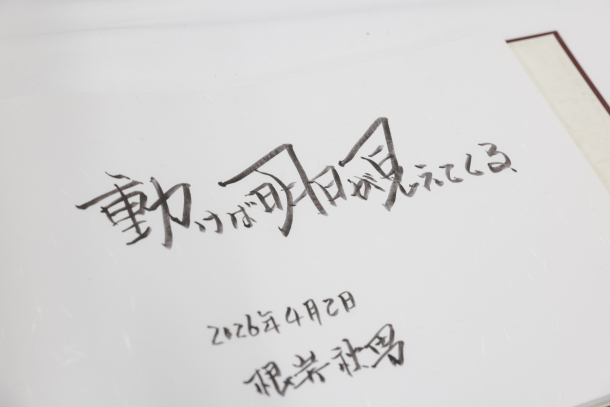 動けば明日が見えてくる
2026年4月2日
根岸社男